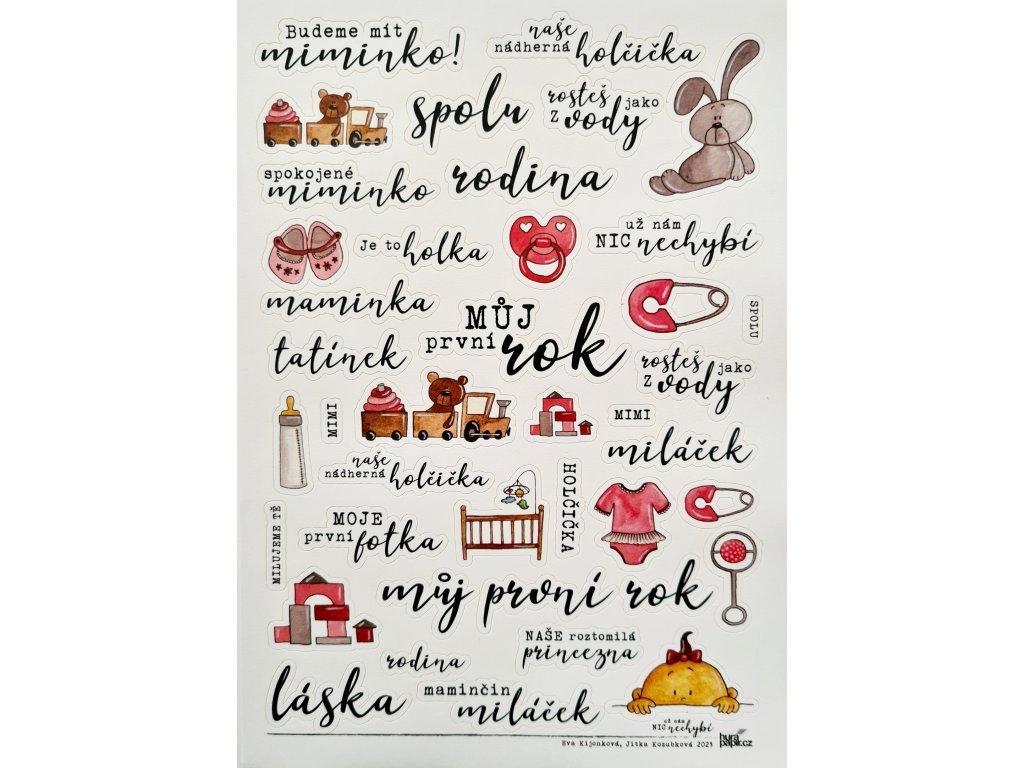 Budeme mít
miminko!
naše
nádherná holčička
spolu
rosteš jako
z vody
spokojené
miminko
rodina
Je to holka
už nám
NIC nechybí
maminka
MŮJ
první rok
SPOLU
tatínek
rosteš jako
z vody
MIMI
MIMI
miláček
naše
nádherná holčička
HOLČIČKA
MILUJEME TĚ
MOJE
první fotka
můj první rok
NAŠE roztomilá
princezna
rodina
láska
maminčin
miláček
už nám
NIC nechybí
Eva Kijonková, Jitka Kozubková 2021
hurá
papír.cz